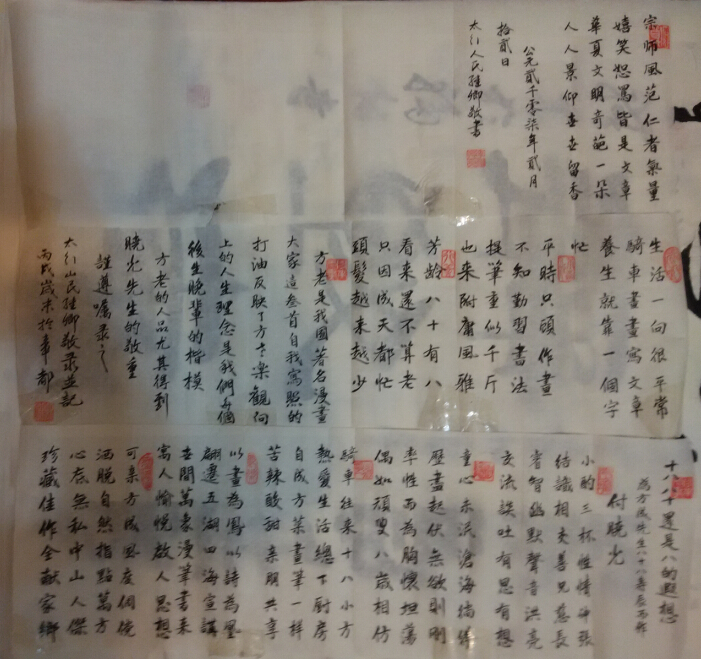 宗师風范仁者氣量
嬉笑怒罵皆是文章
華夏文明奇葩一朵
人人景仰世世留香
公元貳千零柒年貳月
拾貳日
太行人民 敬書
生活一向很平常
騎車畫畫寫文章
養生就靠一個字
忙
平時只顧作畫
不知勤習書法
提筆重似千斤
也来附庸風雅
芳龄八十有八
看来還不算老
只因成天都忙
頭髮越来越少
方老是我國著名漫畫
大家這叁首自我寫照的
打油反映了方老樂觀向
上的人生理念是我們每個
後生晚輩的楷模
方老的人品尤其得到
晓光先生的敬重
謹遵囑录之
太行山民 敬录並記
丙戌歲末於京都
十八 還是八的遐想
為方成先生八十八喜辰而作
付晓光
小酌三杯性情冲張
结識相交善兄慈長
睿智幽默聲音洪亮
交流談吐有思有想
童心未泯滄海徜徉
歷盡起伏無欲則剛
率性而為胸懷坦蕩
偶如頑叟八歲相仿
騎車往来十八小方
熱愛生活總下厨房
自成方菜畫筆一样
苦辣酸甜亲朋共享
以畫為鳳以詩為凰
翩遷五湖四海宣講
世間萬象漫筆書来
寓人愉悦啟人思想
可亲方成風度倜傥
洒脱自然指點萬方
心态無私中山人傑
珍藏佳作全献家鄉